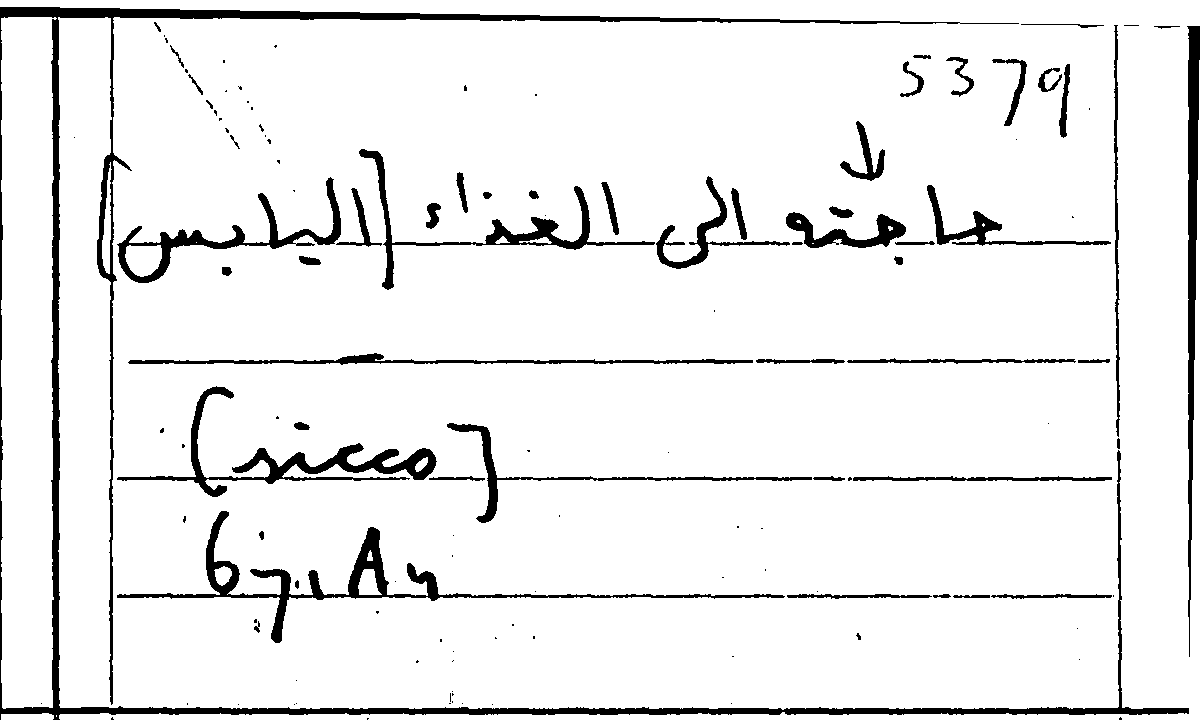 5379
حاجته الى الغذاء [اليابس]
[sicco]
67,1 A 4